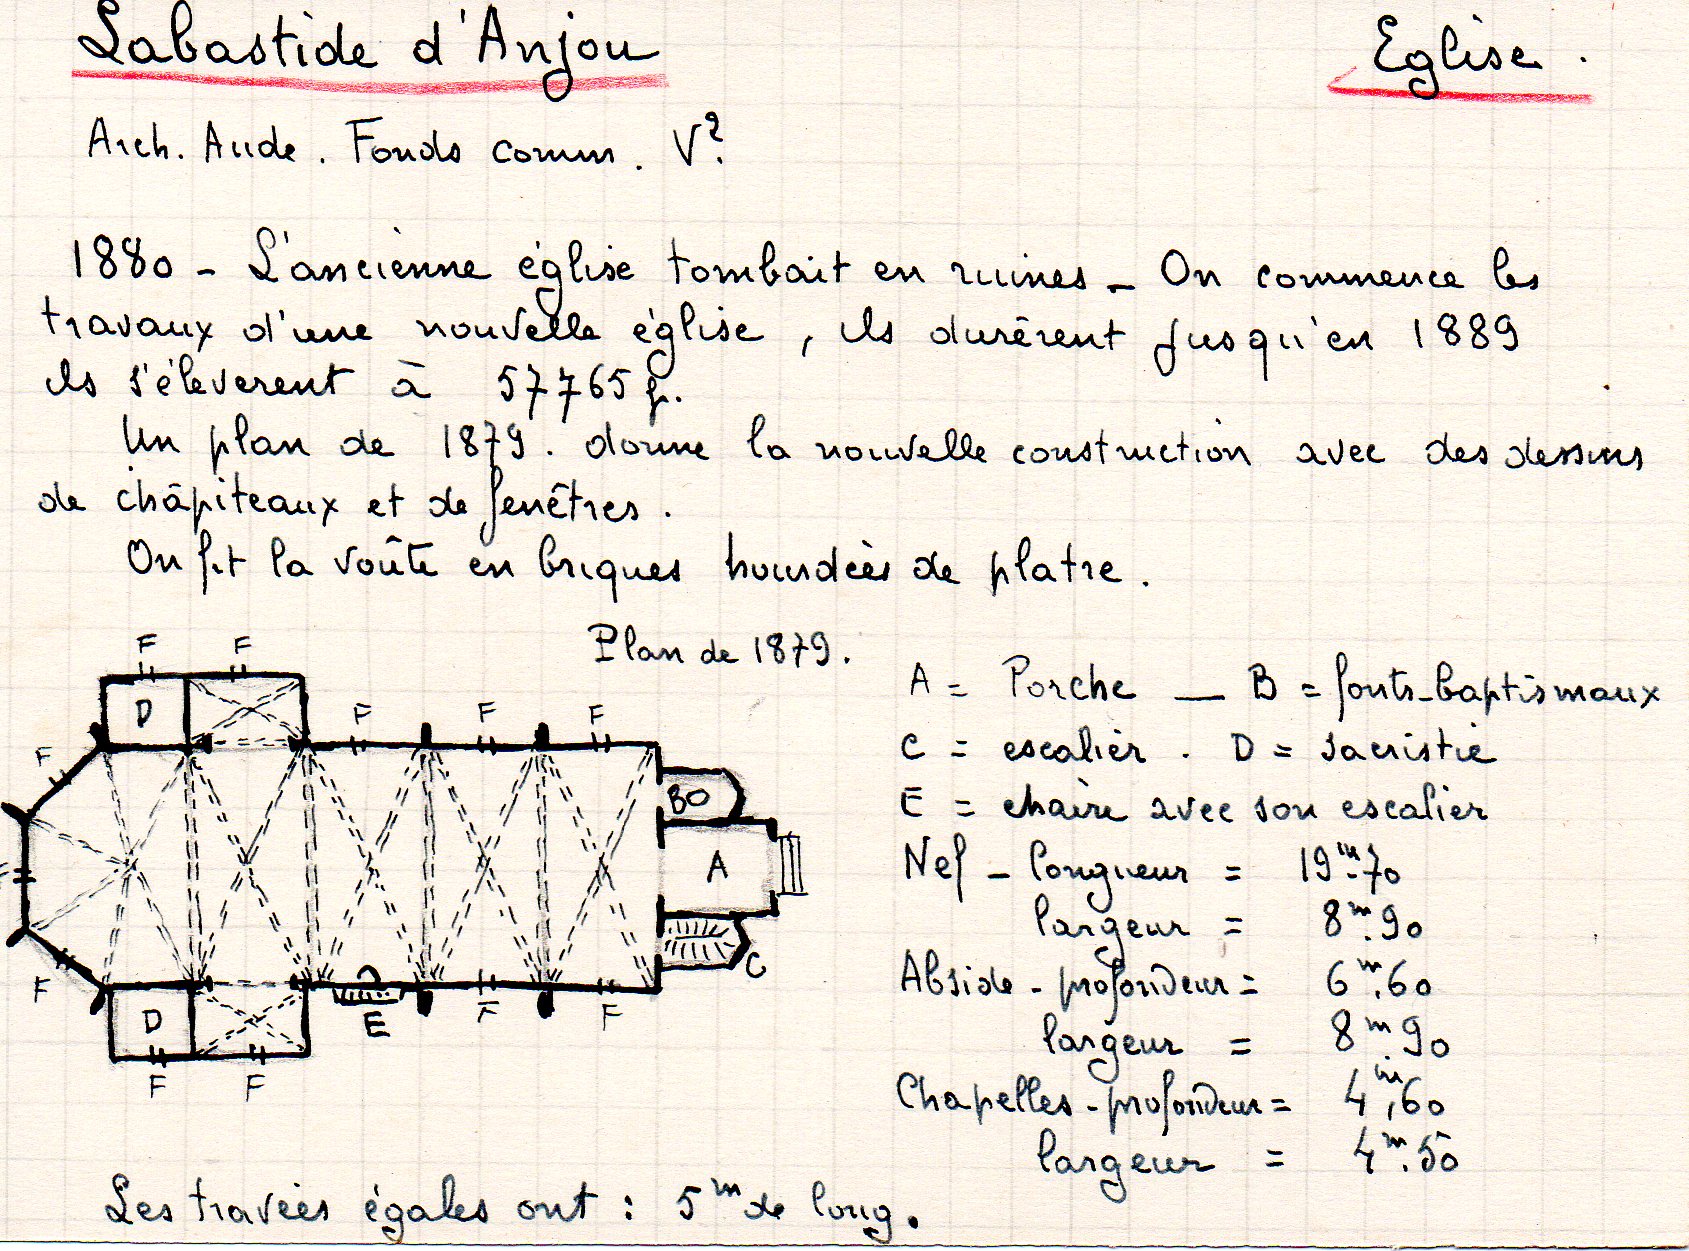 Labastide d'Anjou
Eglise.
Arch. Aude. Fonds comm. V?
1880 - L'ancienne église tombait en ruines - On commence les
travaux d'une nouvelle église, ils durèrent jusqu'en 1889
ils s'éleverent à 57765 f.
Un plan de 1879. donne la nouvelle construction avec des dessins
de châpiteaux et de fenêtres.
On fit la voûte en briques hourdées de platre.
Plan de 1879.
F F
D
F F F F
BO
A
C
F
D
E F F
F F
A = Porche — B = fonts-baptismaux
C = escalier. D = sacristie
E = chaire avec son escalier
Nef - longueur = 19m.70
largeur = 8m.90
Abside - profondeur = 6m.60
largeur = 8m.90
Chapelles - profondeur = 4m,60
largeur = 4m.50
Les travées égales ont : 5m de long.